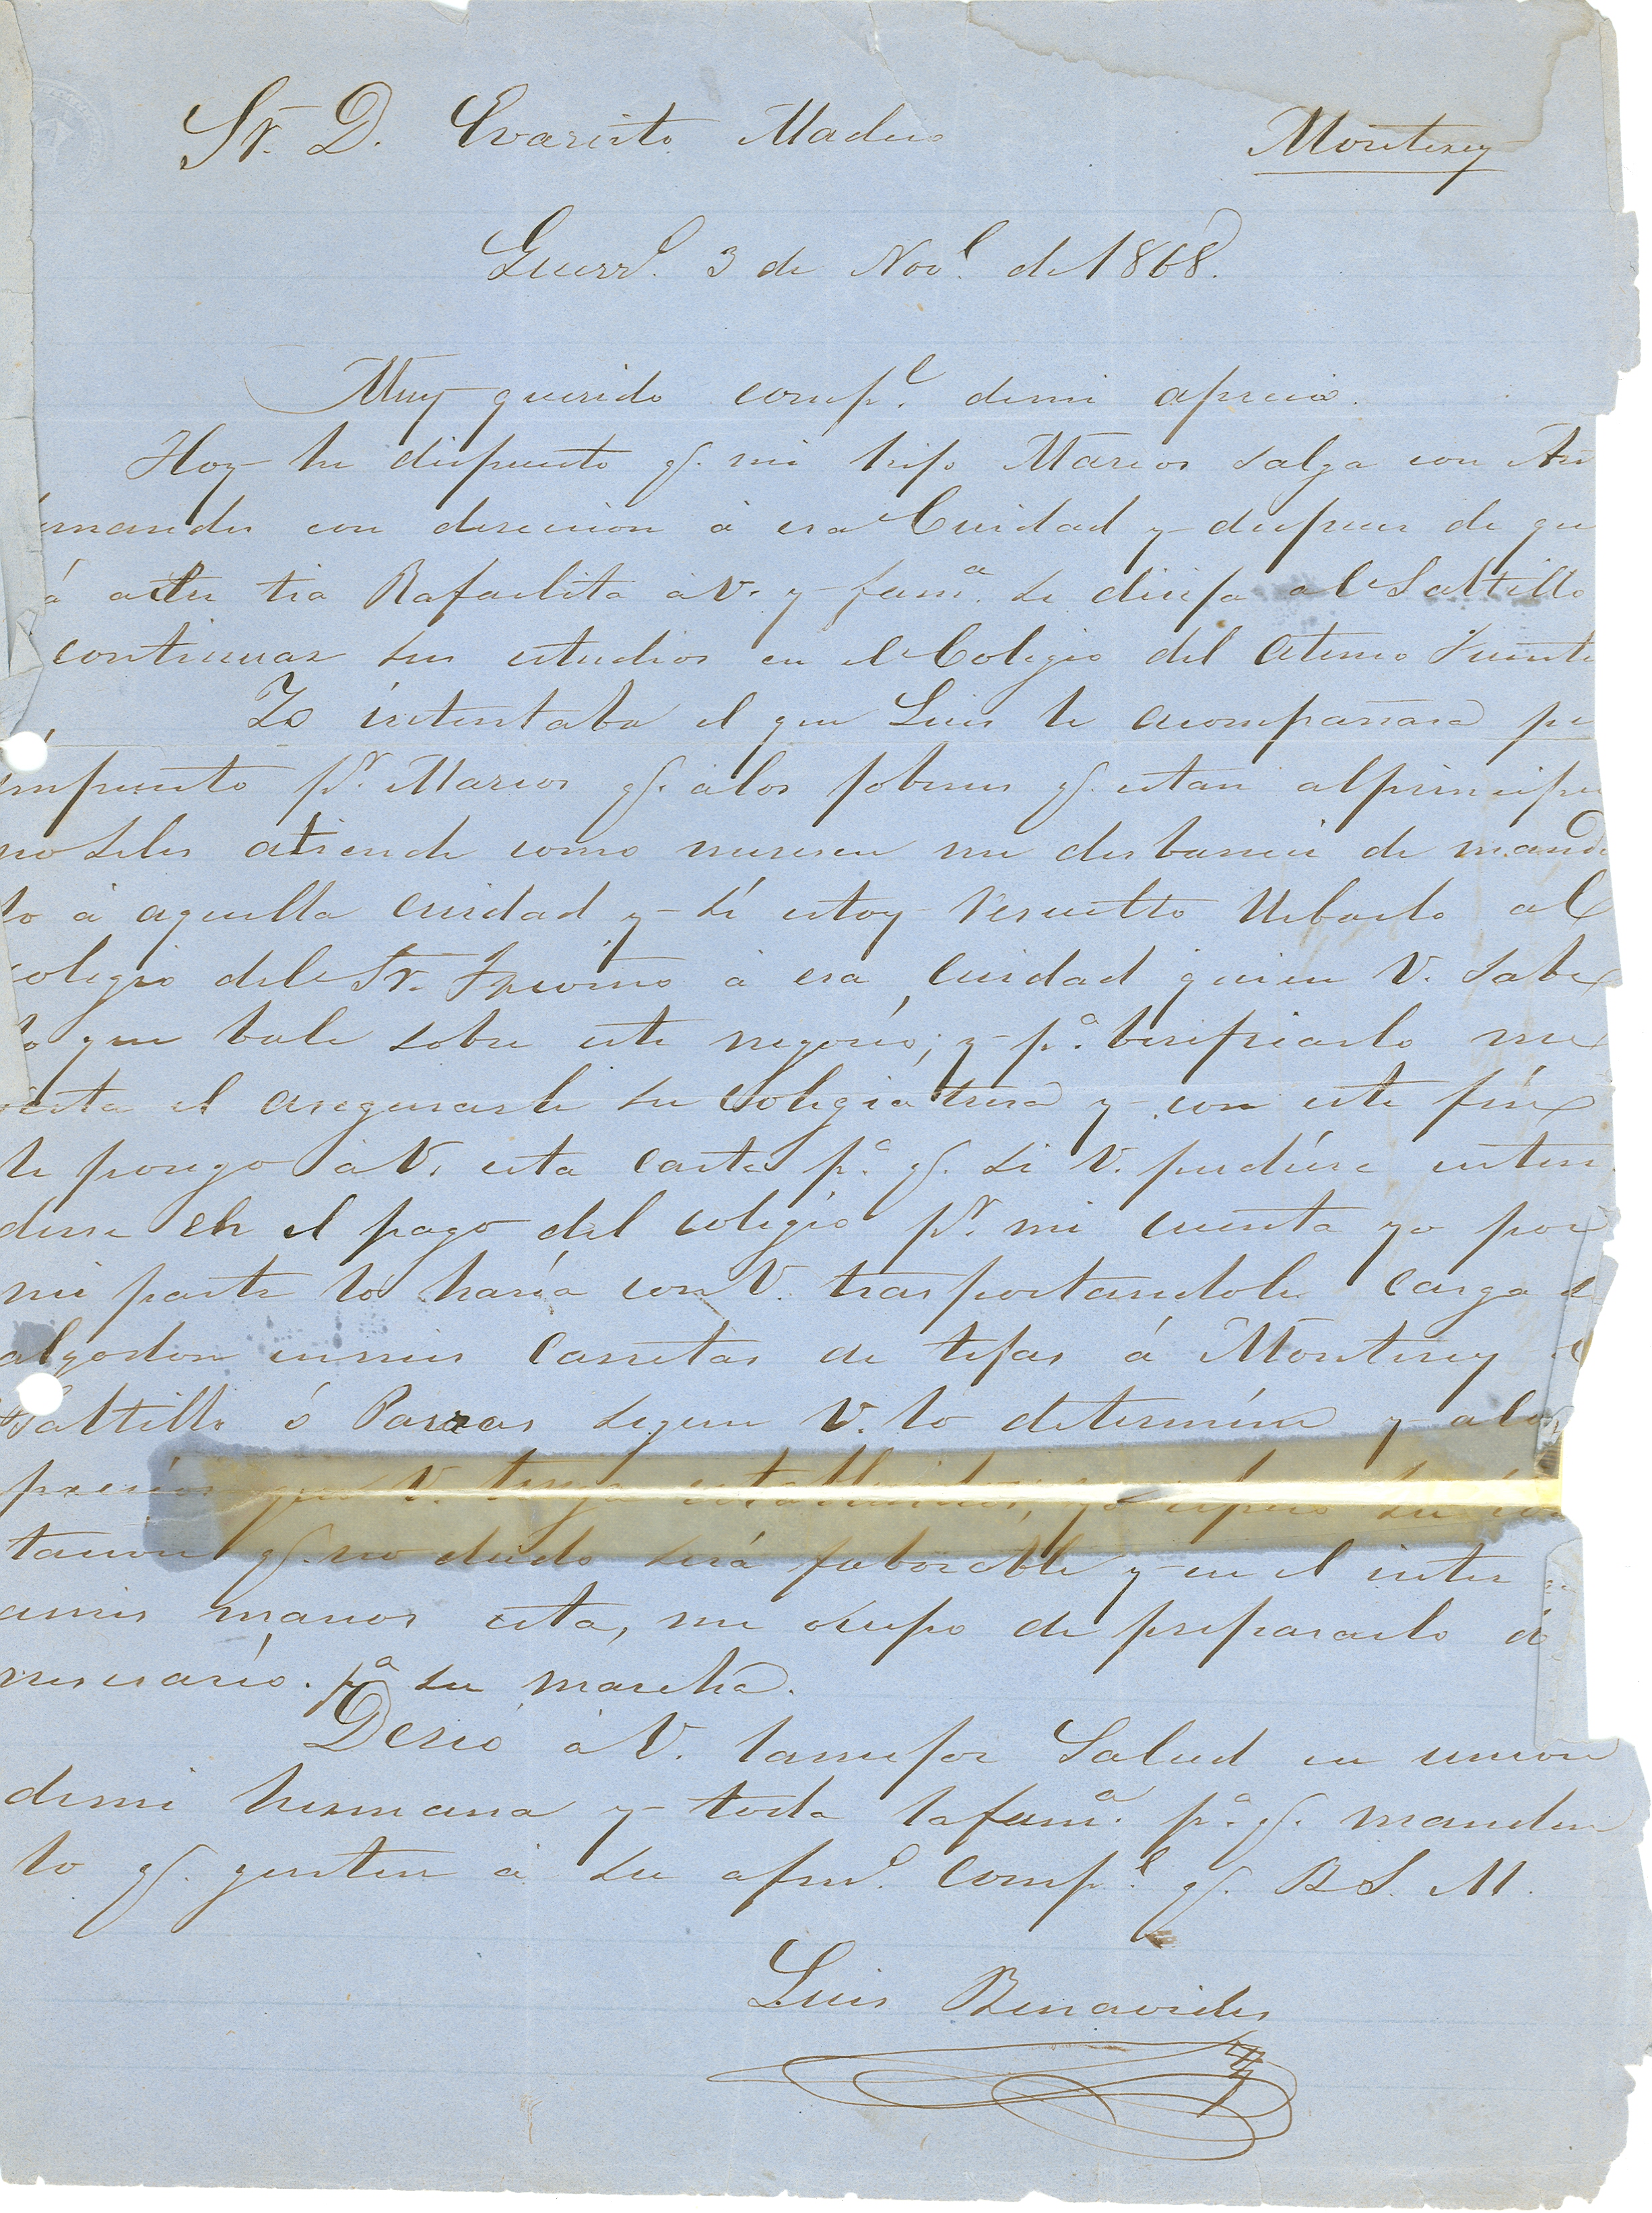 Sr. D. Evaristo Madero Monterey
Guerr.o 3 de Nov.e de 1868.
Muy querido comp.e demi aprecio.
Hoy he dispuesto q. mi hijo Marcos salga con
con desercion á esa Cuidad y despues de
á asu tia Rafaelita á V. y fam.a se dirija al Saltillo
continuar sus estudios en el Colegio del Ateneo Fuente
Yo intentaba el que Luis le acompañara
impuesto p.r Marcos q. á los jobenes q. estan al principio
no seles atiende como meresen me desbaneci de manda
lo á aquella cuidad y sí estoy resuelto llebarlo al
colegio del Sr. á esa cuidad quien V. sabe
lo que bale sobre este negocio; y p.a berificarlo me
el asegurarle su colegiatura y con este fín
le pongo á V. esta carta p.a q. si V. pudíere enten
derse en el pago del colegio p.r mi cuenta yo por
mi parte lo haría con V. trasportandole carga
algodon enmis carretas de tejas á Monterey
Saltillo ó Parras segun V. lo determíne y alos
precios que V. tenga establecidos, yo espero su con
tacion q. no dudo será faborable y en el inter
amis manos esta, me ocupo de prepararlo
nesesario. p.a su marcha.
Deseo á V. lamejor Salud en union
demi hermana y toda lafam.a p.a q. manden
lo q. gusten á su afmo. comp.e q. B S. M.
Luis Benavides